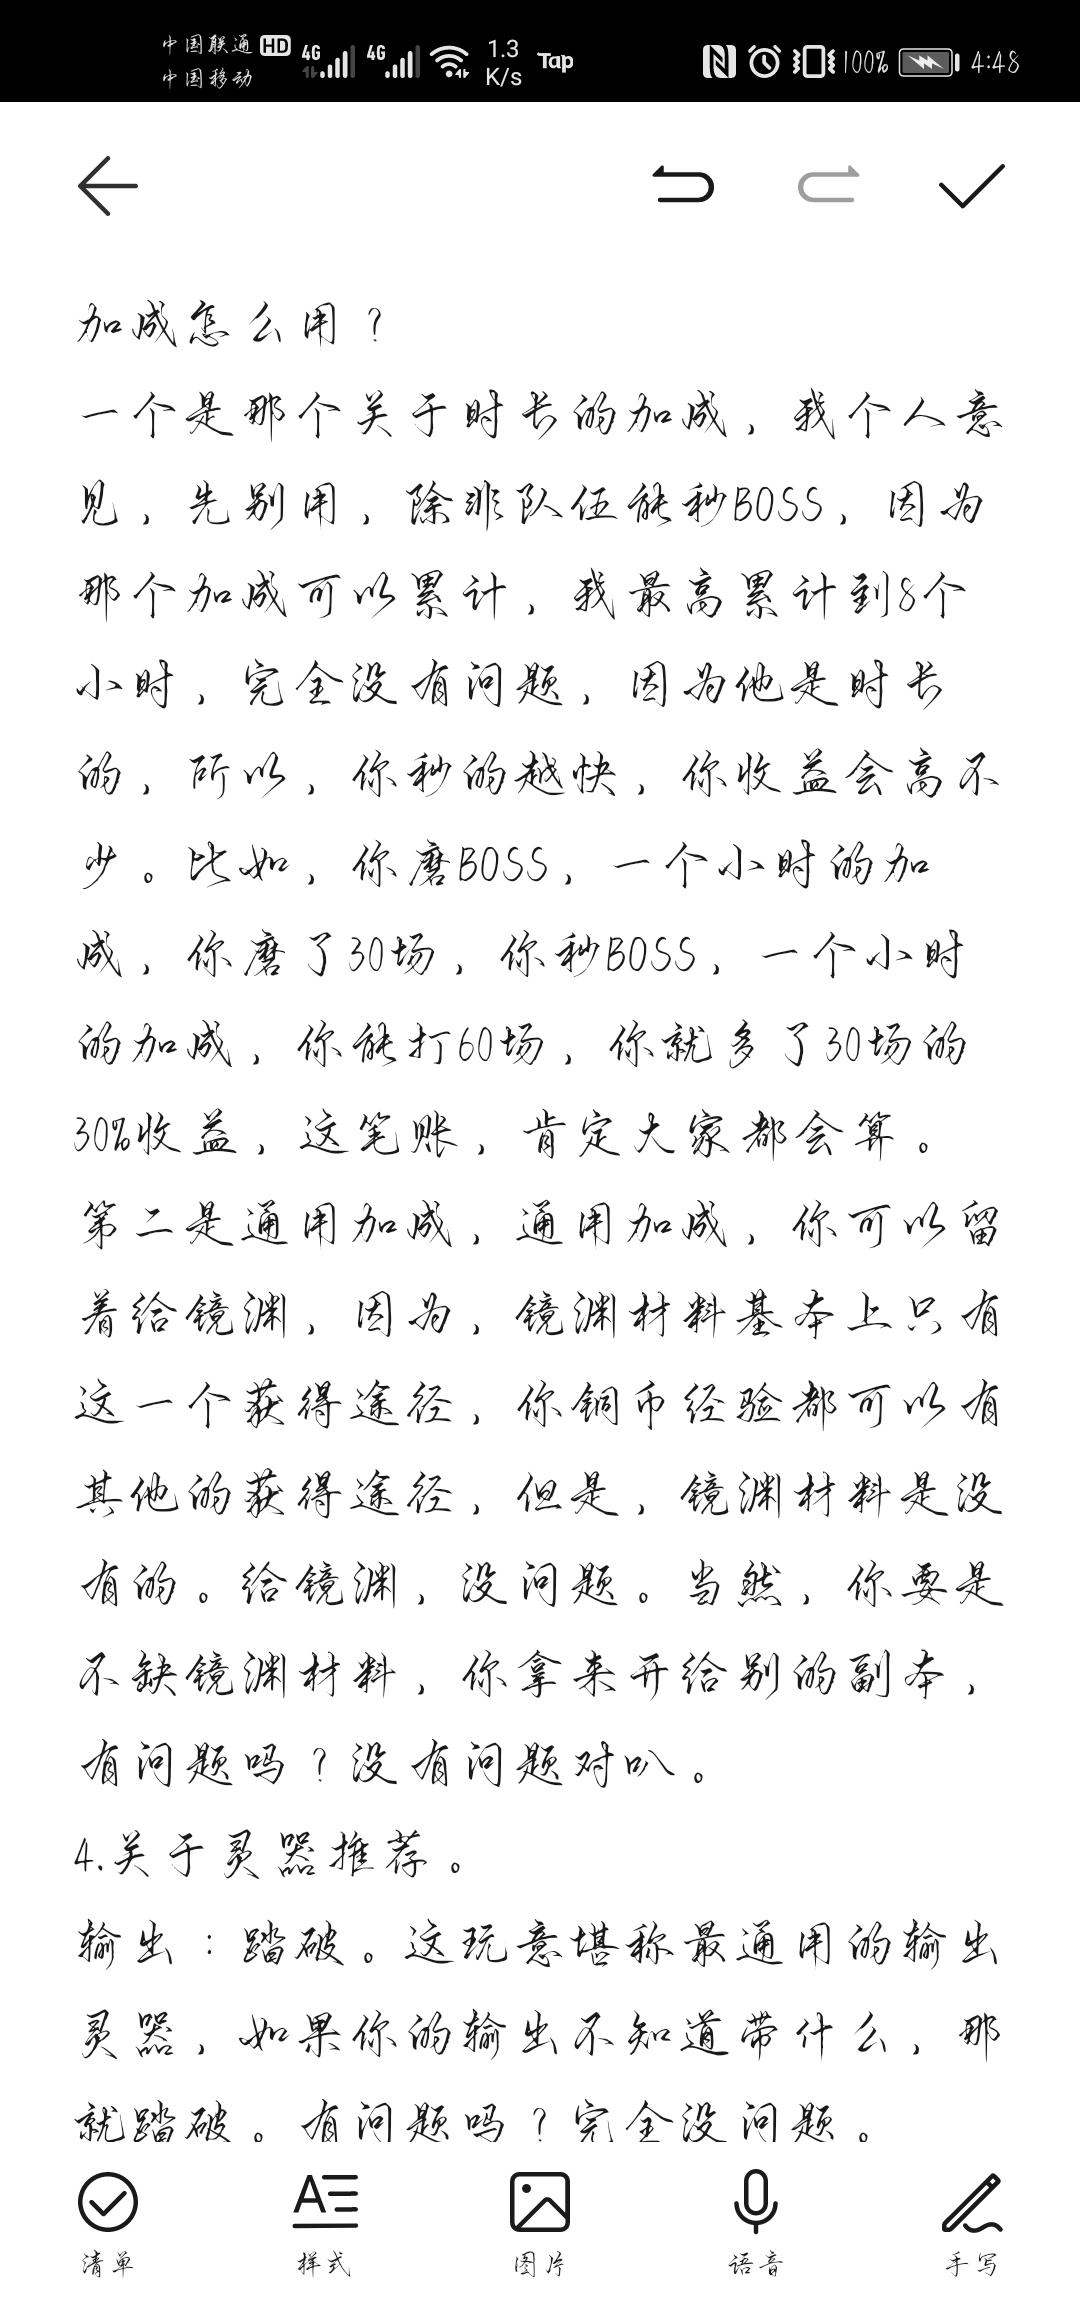 中国联通 HD 4G 4G 1.3 K/s Tap 100% 4:48
中国移动
加成怎么用？
一个是那个关于时长的加成，我个人意
见，先别用，除非队伍能秒BOSS，因为
那个加成可以累计，我最高累计到8个
小时，完全没有问题，因为他是时长
的，所以，你秒的越快，你收益会高不
少。比如，你磨BOSS，一个小时的加
成，你磨了30场，你秒BOSS，一个小时
的加成，你能打60场，你就多了30场的
30%收益，这笔账，肯定大家都会算。
第二是通用加成，通用加成，你可以留
着给镜渊，因为，镜渊材料基本上只有
这一个获得途径，你铜币经验都可以有
其他的获得途径，但是，镜渊材料是没
有的。给镜渊，没问题。当然，你要是
不缺镜渊材料，你拿来开给别的副本，
有问题吗？没有问题对叭。
4.关于灵器推荐。
输出：踏破。这玩意堪称最通用的输出
灵器，如果你的输出不知道带什么，那
就踏破。有问题吗？完全没问题。
清单 样式 图片 语音 手写